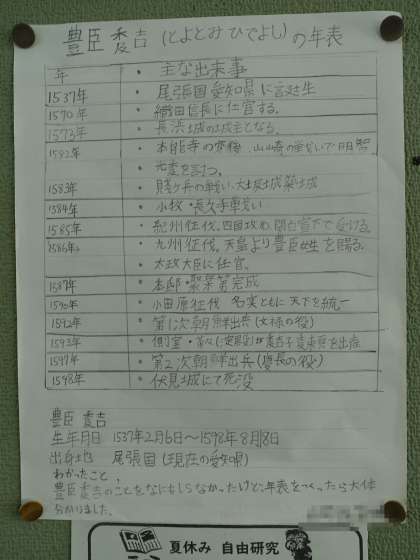 豊臣秀吉(とよとみひでよし)の年表
年 ・主な出来事
1537年 ・尾張国愛知県に誕生
1570年 ・織田信長に仕官する。
1573年 ・長浜城の城主となる。
1582年 ・本能寺の変後、山崎の戦いで明智
光秀を討つ。
1583年 ・賤ヶ岳の戦い、大坂城築城
1584年 ・小牧・長久手戦い
1585年 ・紀州征伐、四国攻め、関白宣下を受ける。
1586年 ・九州征伐、天皇より豊臣姓を賜る。
・太政大臣に任官。
1587年 ・本邸・聚楽第完成
1590年 ・小田原征伐 名実ともに天下を統一
1592年 ・第1次朝鮮出兵(文禄の役)
1593年 ・側室・茶々が秀吉子秀頼を出産
1597年 ・第2次朝鮮出兵(慶長の役)
1598年 ・伏見城にて死没
豊臣秀吉
生年月日 1537年2月6日～1598年8月8日
出身地 尾張国(現在の愛知県)
わかったこと、
豊臣秀吉のことをなにもしらなかったけど、年表をつくったら大体
分かりました。
夏休み 自由研究